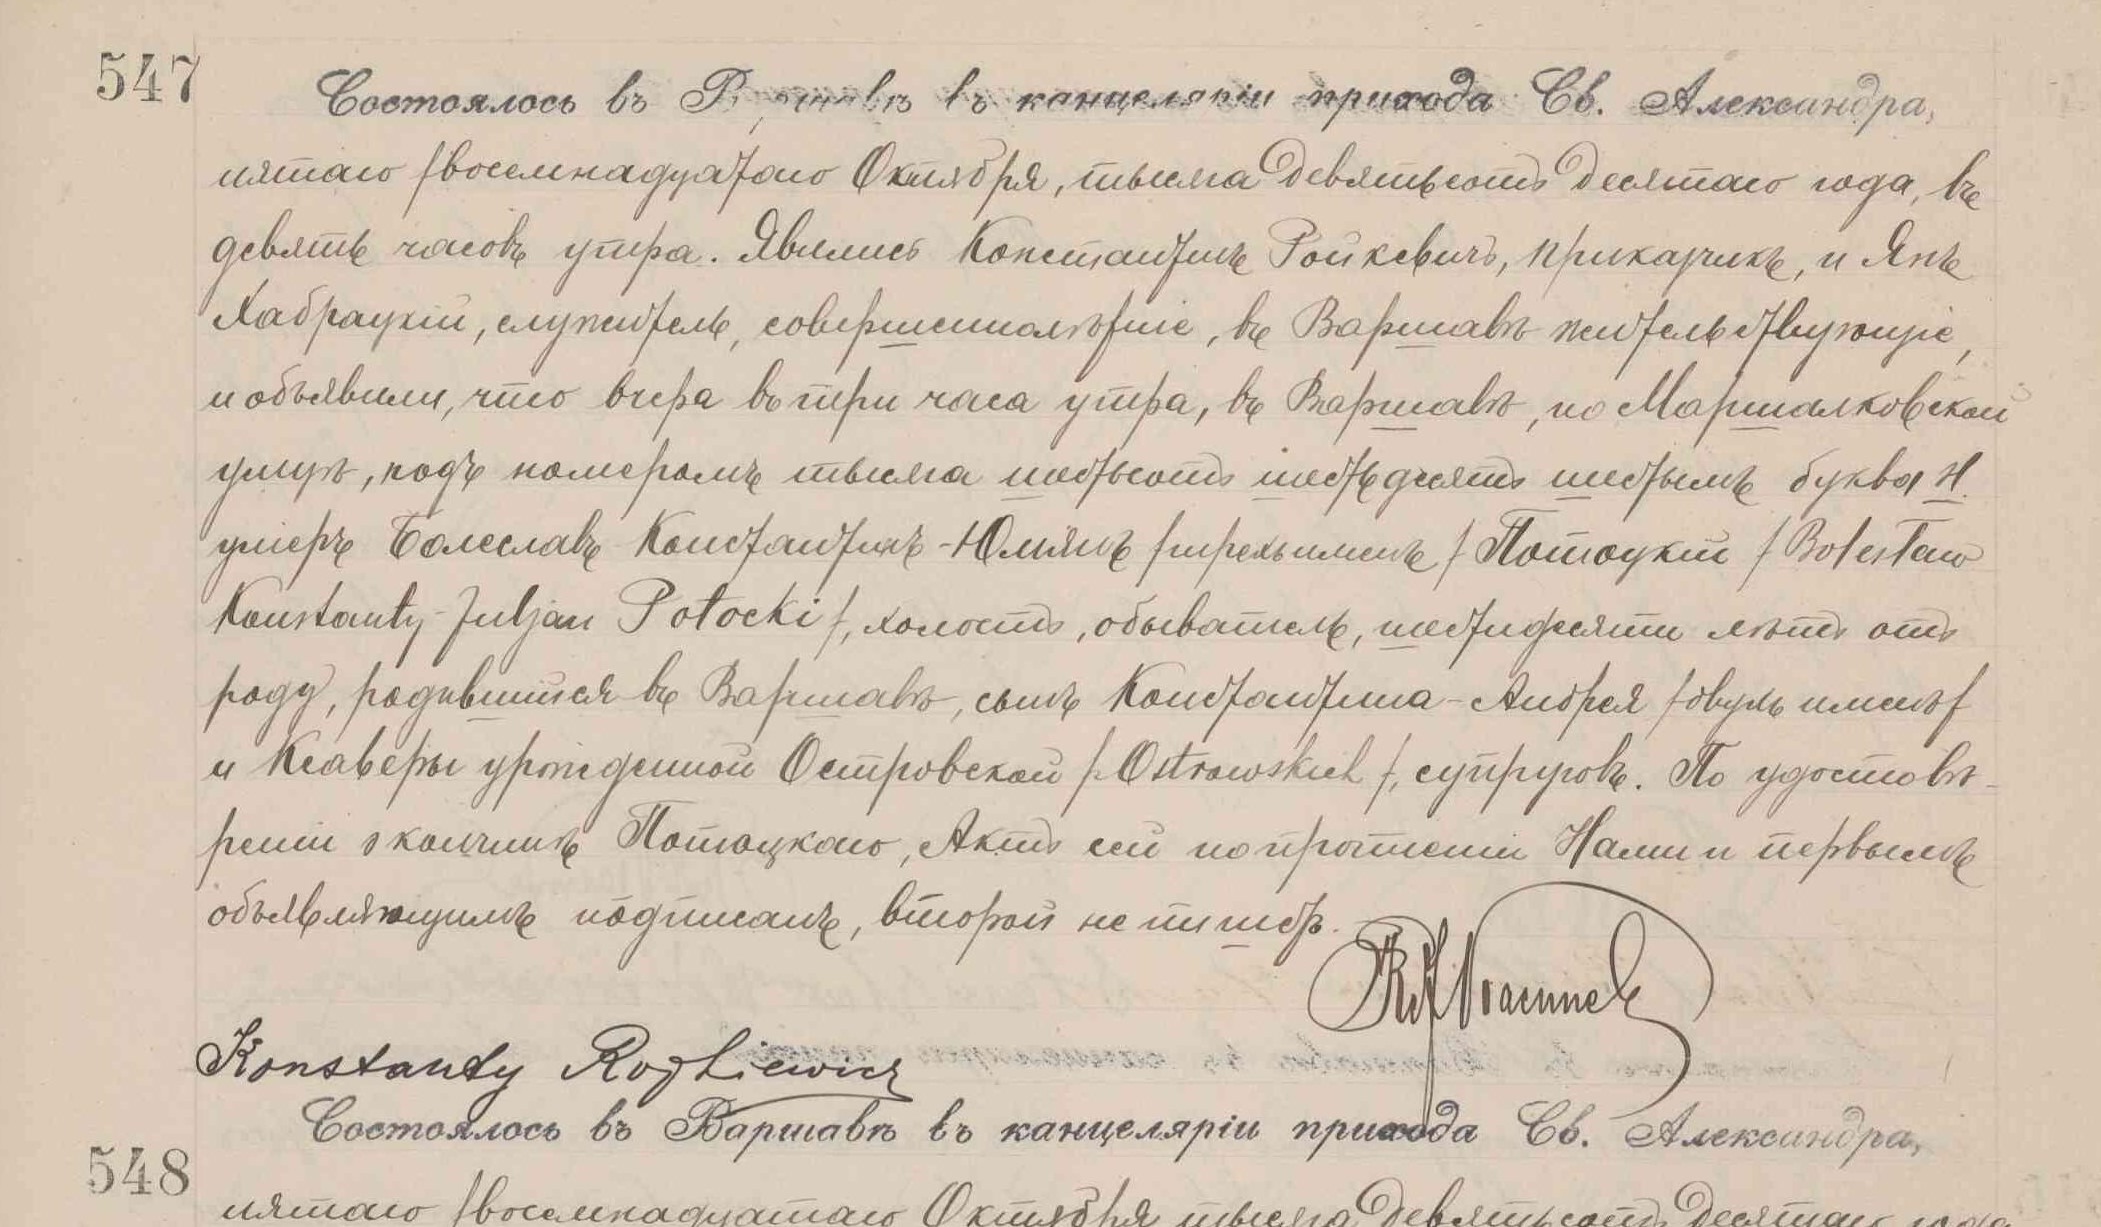 547
Состоялось въ Варшавѣ въ канцеляріи прихода Св. Александра,
пятаго /восемнадцатаго Октября, тысяча девятьсотъ десятаго года, въ
девять часовъ утра. Явились Константинъ Ройкевичъ, прикащикъ, и Янъ
Хабрацкій, служитель, совершеннолѣтніе, въ Варшавѣ жительствующіе,
и объявили, что вчера въ три часа утра, въ Варшавѣ, по Маршалковской
улицѣ, подъ номеромъ тысяча шестьсотъ шестьдесятъ шестымъ буква Н.
умеръ Болеславъ Константинъ-Юліянъ /трехъ именъ/ Потоцкій /Bolesław
Konstanty-Juljan Potocki/, холостъ, обыватель, шестидесяти лѣтъ отъ
роду, родившійся въ Варшавѣ, сынъ Константина-Андрея /двухъ именъ/
и Ксаверы урожденной Островской /Ostrowskich/, супруговъ. По удостовѣ-
реніи о кончинѣ Потоцкаго, Актъ сей по прочтеніи Нами и первымъ
объявляющимъ подписанъ, второй не пишетъ.
Konstanty Roykiewicz
548
Состоялось въ Варшавѣ въ канцеляріи прихода Св. Александра,
пятаго /восемнадцатаго Октября тысяча девятьсотъ десятаго года